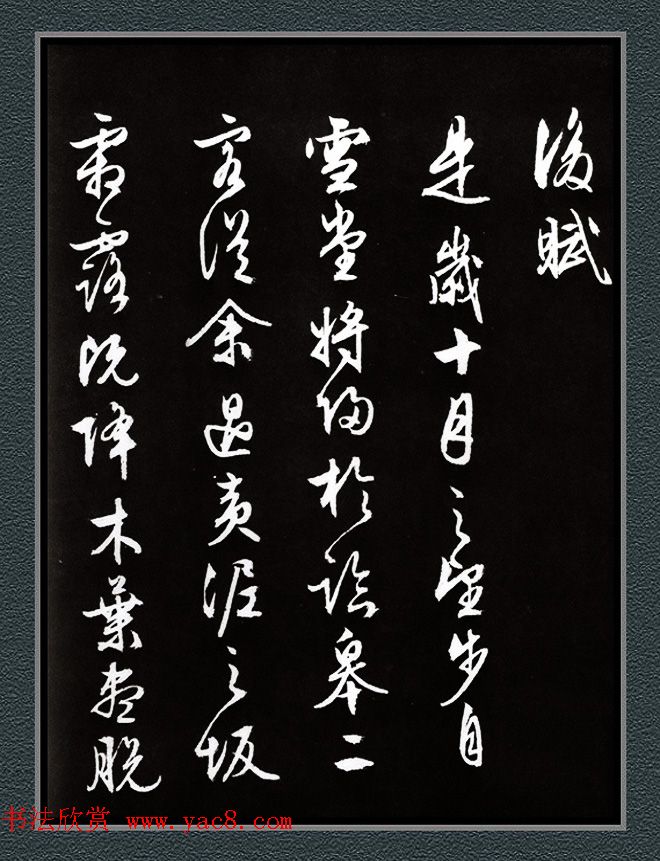 後賦
是歲十月之望步自
雪堂將歸於臨皋二
客從余過黃泥之坂
霜露既降木葉盡脫
书法欣赏 www.yac8.com